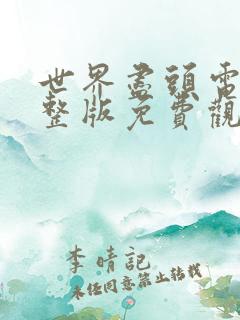 世界盡頭電
整版免費觀
李晴記
未經同意禁止转载